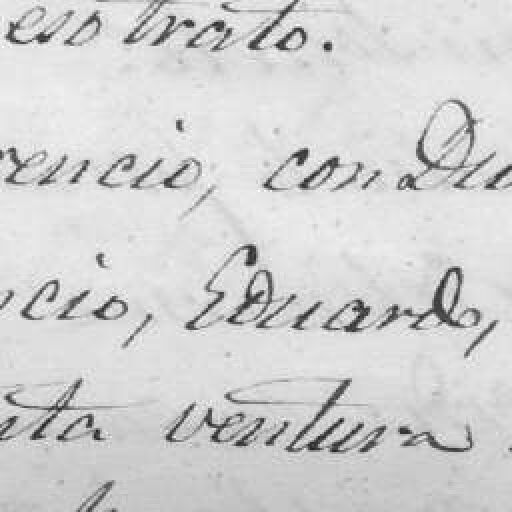 eso trato.
rencio, con Du
ncio, Eduardo,
nta ventura